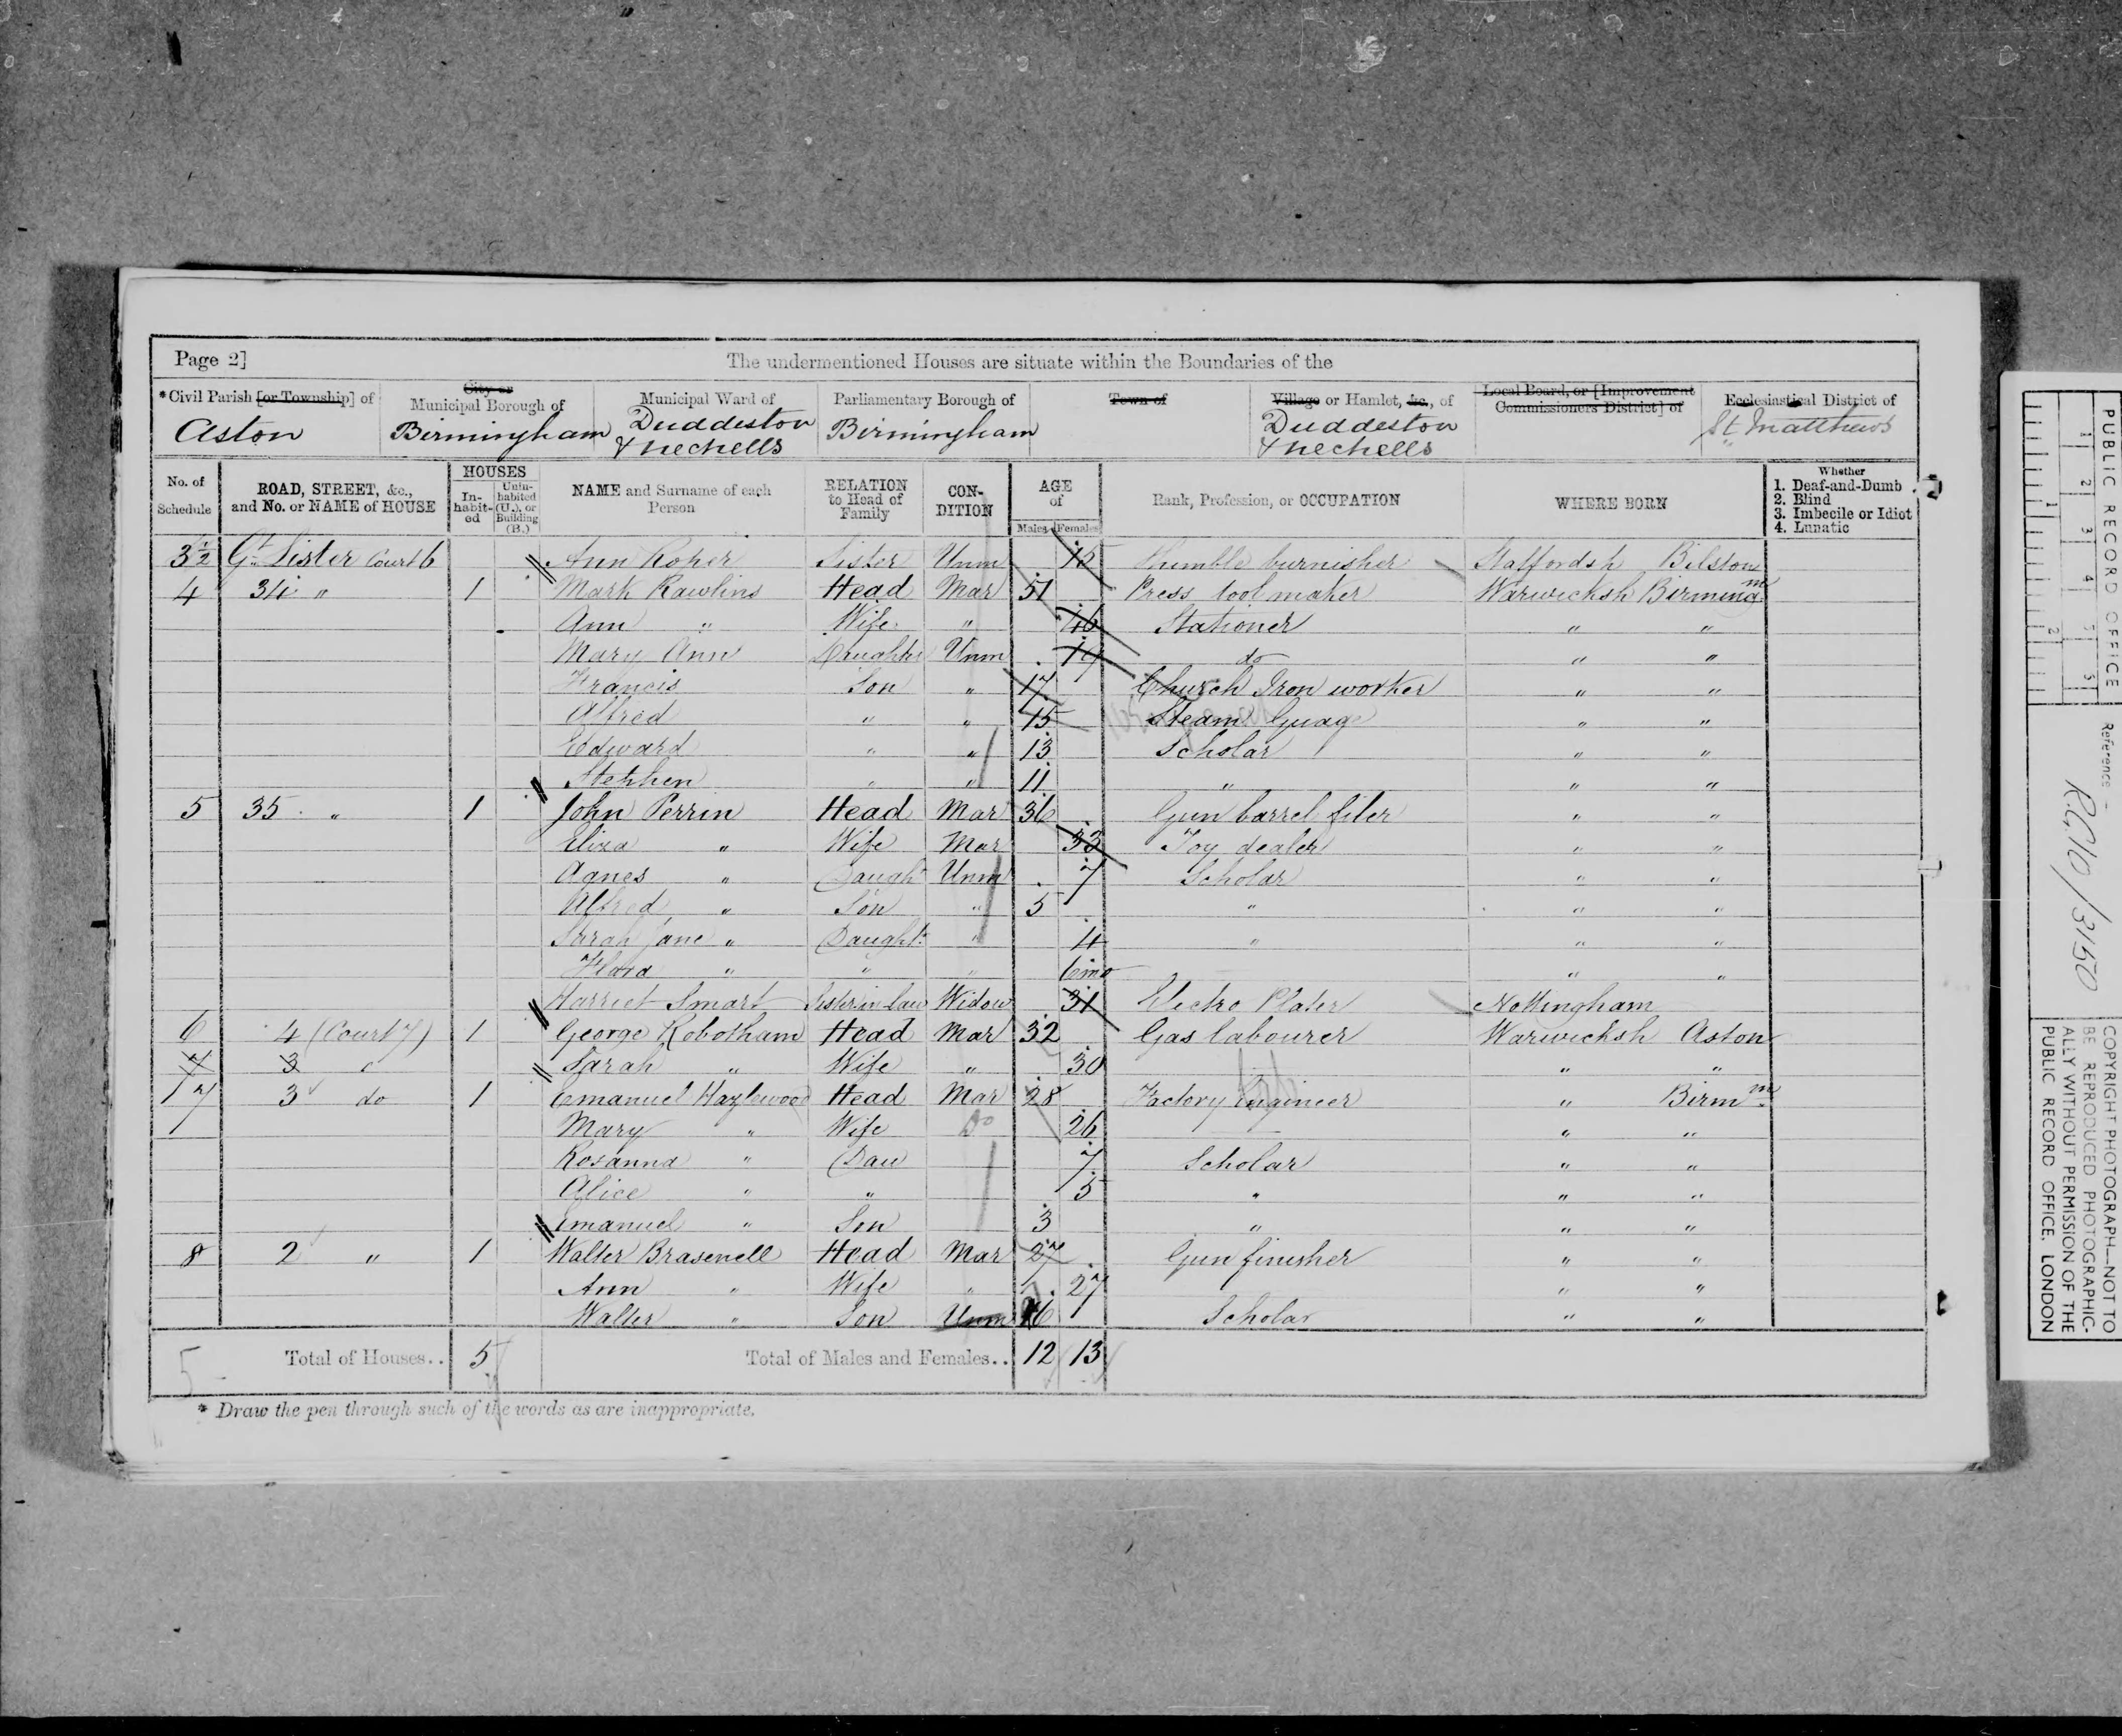 Page 2]
The undermentioned Houses are situate within the Boundaries of the
*Civil Parish [or Township] of
City or Municipal Borough of
Municipal Ward of
Parliamentary Borough of
Town of
Village or Hamlet, &c., of
Local Board, or [Improvement Commissioners District] of
Ecclesiastical District of
Aston
Birmingham
Duddeston & Nechells
Birmingham
Duddeston & Nechells
St. Matthews
No. of Schedule
ROAD, STREET, &c., and No. or NAME of HOUSE
HOUSES
In-habit-ed
Unin-habited (U.), or Building (B.)
NAME and Surname of each Person
RELATION to Head of Family
CON-DITION
AGE of
Males
Females
Rank, Profession, or OCCUPATION
WHERE BORN
Whether
1. Deaf-and-Dumb
2. Blind
3. Imbecile or Idiot
4. Lunatic
3½ Gt Lister Court 6 Ann Roper Sister Unm 15 Thimble burnisher Staffordsh Bilston
4 34 " 1 Mark Rawlins Head Mar 51 Press tool maker Warwicksh Birming m
Ann " Wife " 46 Stationer " "
Mary Ann Daughter Unm 19 do " "
Francis Son " 17 Church Iron worker " "
Alfred " " 15 Steam Guage " "
Edward " " 13 Scholar " "
Stephen " " 11 " " "
5 35 " 1 John Perrin Head Mar 36 Gun barrel filer " "
Eliza " Wife Mar 33 Toy dealer " "
Agnes " Daugh Unm 7 Scholar " "
Alfred " Son " 5 " " "
Sarah Jane " Daught " 4 " " "
Flora " " " 6mo " "
Harriet Smart Sister in law Widow 31 Electro Plater Nottingham
6 4 (Court 7) 1 George Robotham Head Mar 32 Gas labourer Warwicksh Aston
7 3 Sarah " Wife " 30 " "
7 3 do 1 Emanuel Hazlewood Head Mar 28 Factory Engineer " Birm m
Mary " Wife Do 26 " "
Rosanna " Dau 7 Scholar " "
Alice " " 5 " " "
Emanuel " Son 3 " " "
8 2 " 1 Walter Brasenell Head Mar 27 Gun finisher " "
Ann " Wife " 27 " "
Walter " Son Unm 6 Scholar " "
5 Total of Houses.. 5 Total of Males and Females.. 12 13
* Draw the pen through such of the words as are inappropriate.
PUBLIC RECORD OFFICE
1 2 3 4 5 6
1 2
Reference -
R.G.10/3150
COPYRIGHT PHOTOGRAPH—NOT TO
BE REPRODUCED PHOTOGRAPHIC-
ALLY WITHOUT PERMISSION OF THE
PUBLIC RECORD OFFICE, LONDON